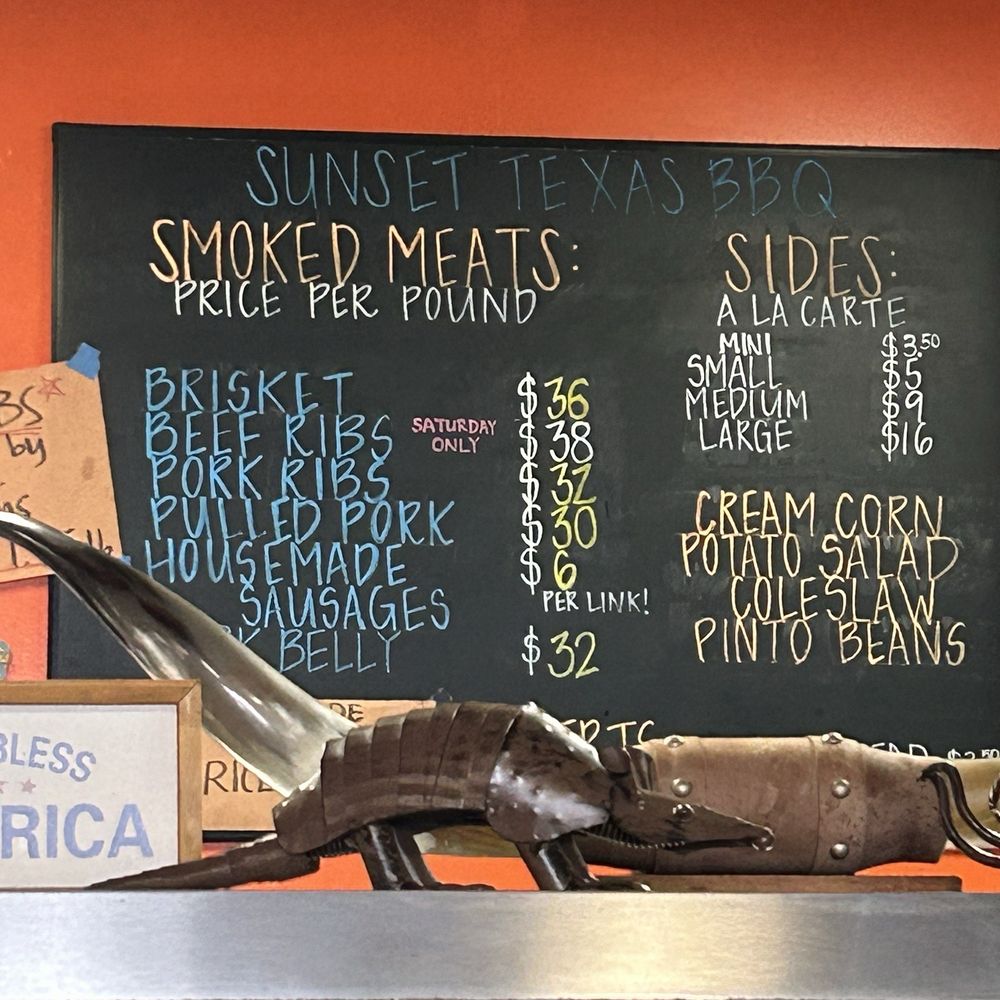 SUNSET TEXAS BBQ
SMOKED MEATS:
PRICE PER POUND
BRISKET $36
BEEF RIBS SATURDAY ONLY $38
PORK RIBS $32
PULLED PORK $30
HOUSEMADE $6
SAUSAGES PER LINK!
BELLY $32
SIDES:
A LA CARTE
MINI $3.50
SMALL $5
MEDIUM $9
LARGE $16
CREAM CORN
POTATO SALAD
COLESLAW
PINTO BEANS
BS
by
BLESS
RICA